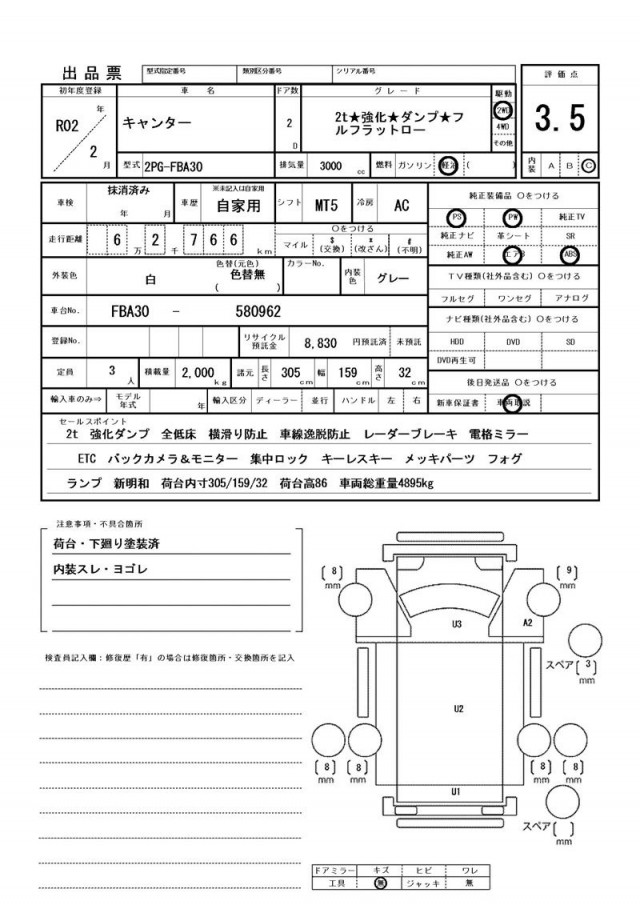 出品票 型式指定番号 類別区分番号 シリアル番号
評価点
3.5
初年度登録 車名 ドア数 グレード 駆動
R02 年 2 月
キャンター
2 D
2t★強化★ダンプ★フルフラットロー
2WD
4WD
その他
型式 2PG-FBA30 排気量 3000 cc 燃料 ガソリン 軽油 ( )
内装 A B C
車検 抹消済み 年 月 車歴 ※未記入は自家用 自家用 シフト MT5 冷房 AC
純正装備品 ○をつける
PS PW 純正TV
純正ナビ 革シート SR
純正AW エアB ABS
走行距離 6 万 2 千 7 6 6 km
○をつける
マイル $ (交換) * (改ざん) # (不明)
外装色 白 色替(元色) 色替無 ( ) カラーNo. 内装色 グレー
TV種類(社外品含む) ○をつける
フルセグ ワンセグ アナログ
車台No. FBA30 - 580962
ナビ種類(社外品含む) ○をつける
HDD DVD SD
DVD再生可
登録No. リサイクル預託金 8,830 円預託済 未預託
定員 3 人 積載量 2,000 kg 諸元 長さ 305 cm 幅 159 cm 高さ 32 cm
後日発送品 ○をつける
新車保証書 車両取説
輸入車のみ⇒ モデル年式 年 輸入区分 ディーラー 並行 ハンドル 左 右
セールスポイント
2t 強化ダンプ 全低床 横滑り防止 車線逸脱防止 レーダーブレーキ 電格ミラー
ETC バックカメラ＆モニター 集中ロック キーレスキー メッキパーツ フォグ
ランプ 新明和 荷台内寸305/159/32 荷台高86 車両総重量4895kg
注意事項・不具合箇所
荷台・下廻り塗装済
内装スレ・ヨゴレ
検査員記入欄：修復歴「有」の場合は修復箇所・交換箇所を記入
(8) mm
(9) mm
U3
A2
スペア(3) mm
U2
(8) mm
(8) mm
(8) mm
(8) mm
U1
スペア( ) mm
ドアミラー キズ ヒビ ワレ
工具 無 ジャッキ 無